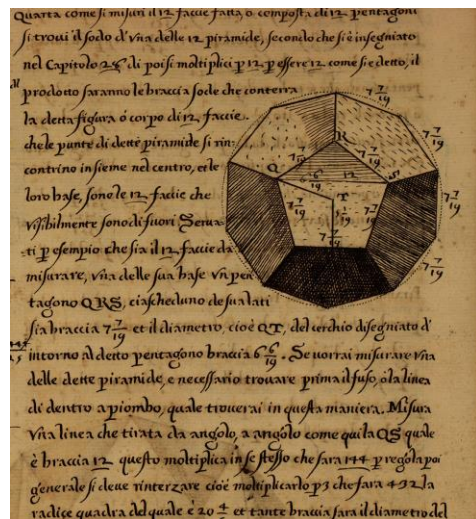 Quarta come si misuri il 12 faccie fatta, o composta di 12 pentagoni
si trovi il sodo d'una delle 12 piramide, secondo che si è insegnato
nel Capitolo 28 di poi si moltiplici p 12 p essere 12 come si e detto, il
prodotto saranno le braccia sode che conterra
la detta figura ò corpo di 12 faccie.
che le punte di dette piramide si rin:
contrino insieme nel centro, et le
loro base, sono le 12 faccie che
visibilmente sono di fuori Serua
ti p esempio che sia il 12 faccie da
misurare, vna delle sua base vn pen
tagono QRS, ciascheduno de sua lati
sia braccia 7 7/19 et il diametro, cioè QT, del cerchio disegniato d'
intorno al detto pentagono braccia 6 6/19. Se vorrai misurare vna
delle dette piramide, e necessario trovare prima il fuso, ò la linea
di dentro a piombo, quale troverai in questa maniera. Misura
vna linea che tirata da angolo, a angolo come qui la QS quale
è braccia 12 questo moltiplica in se stesso che fara 144 p regola poi
generale si deve rinterzare cioè moltiplicarlo p 3 che fara 432 la
radice quadra del quale è 20 4/5 et tante braccia sara il diametro del
7 7/19
7 7/19
7 7/19
7 7/19
7 7/19
R
7 7/19
Q
12
S
6 6/19
T
7 7/19
7 7/19